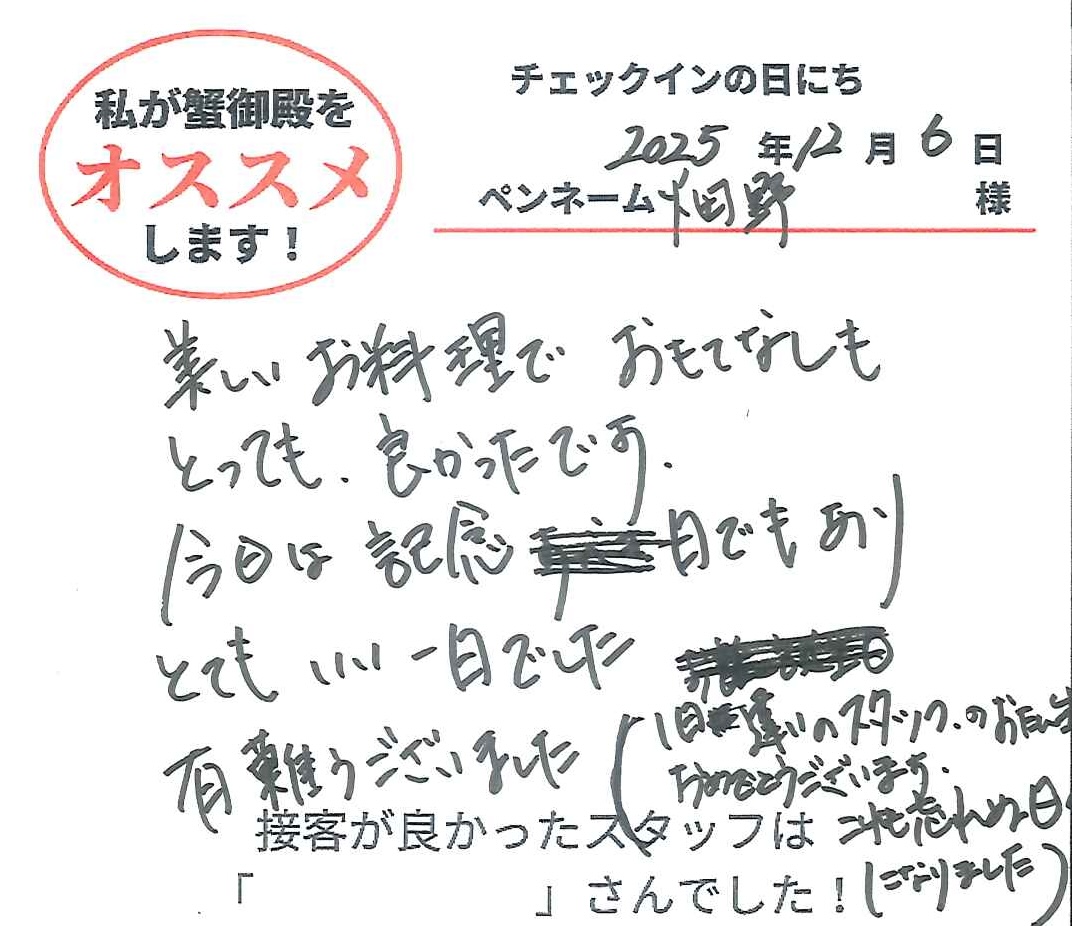 私が蟹御殿を
オススメ
します！
チェックインの日にち
2025 年 12 月 6 日
ペンネーム 畑野 様
美しいお料理で おもてなしも
とっても、良かったです.
(今日は 記念 日でもあり)
とても いい 一日でした
有難うございました
(1日違いのスタッフ.のお誕生
おめでとうございます.
これも忘れぬ日
になりました)
接客が良かったスタッフは
「 」さんでした！